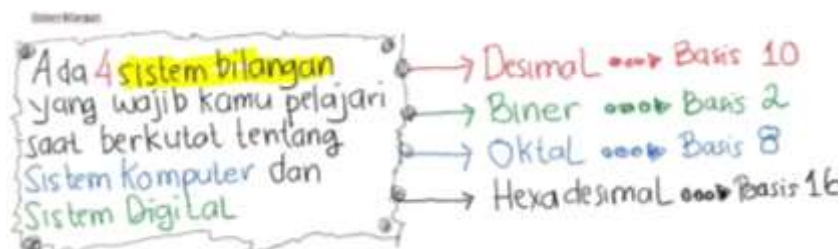 Ada 4 sistem bilangan
yang wajib kamu pelajari
saat berkutat tentang
Sistem Komputer dan
Sistem Digital
Desimal Basis 10
Biner Basis 2
Oktal Basis 8
Hexadesimal Basis 16